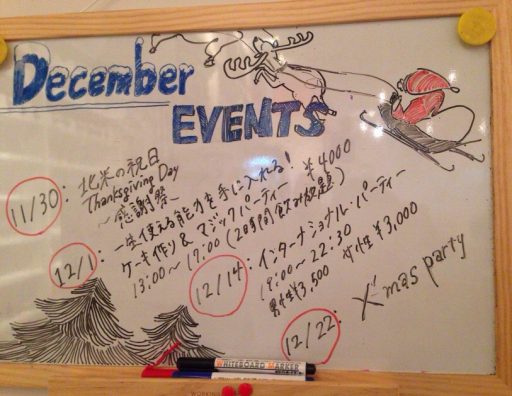 December
EVENTS
11/30: 北米の祝日
Thanksgiving Day
～感謝祭～
12/1: 一生使える能力を手に入れる!
ケーキ作り & マジックパーティー ¥4000
13:00～17:00 (2時間飲み放題)
12/14: インターナショナル・パーティー
19:00～22:30
男性¥3,500 女性¥3,000
12/22: X'mas party
WHITEBOARD MARKER